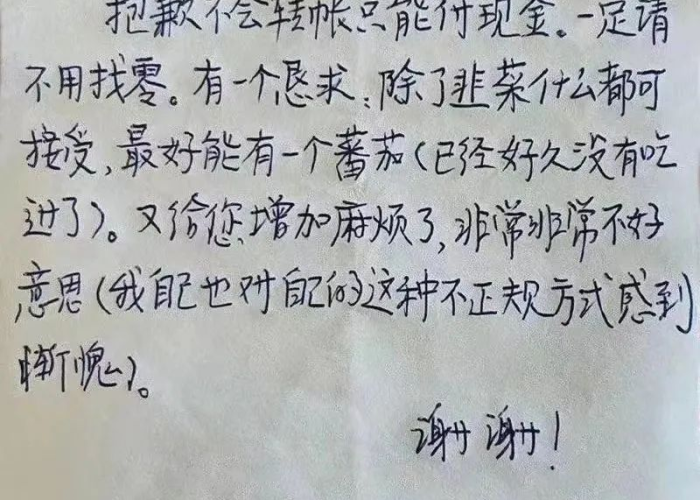 抱歉不会转帐只能付现金。一定请
不用找零。有一个恳求：除了韭菜什么都可
接受，最好能有一个蕃茄（已经好久没有吃
过了）。又给您增加麻烦了，非常非常不好
意思（我自己也对自己的这种不正规方式感到
惭愧）。
谢谢！